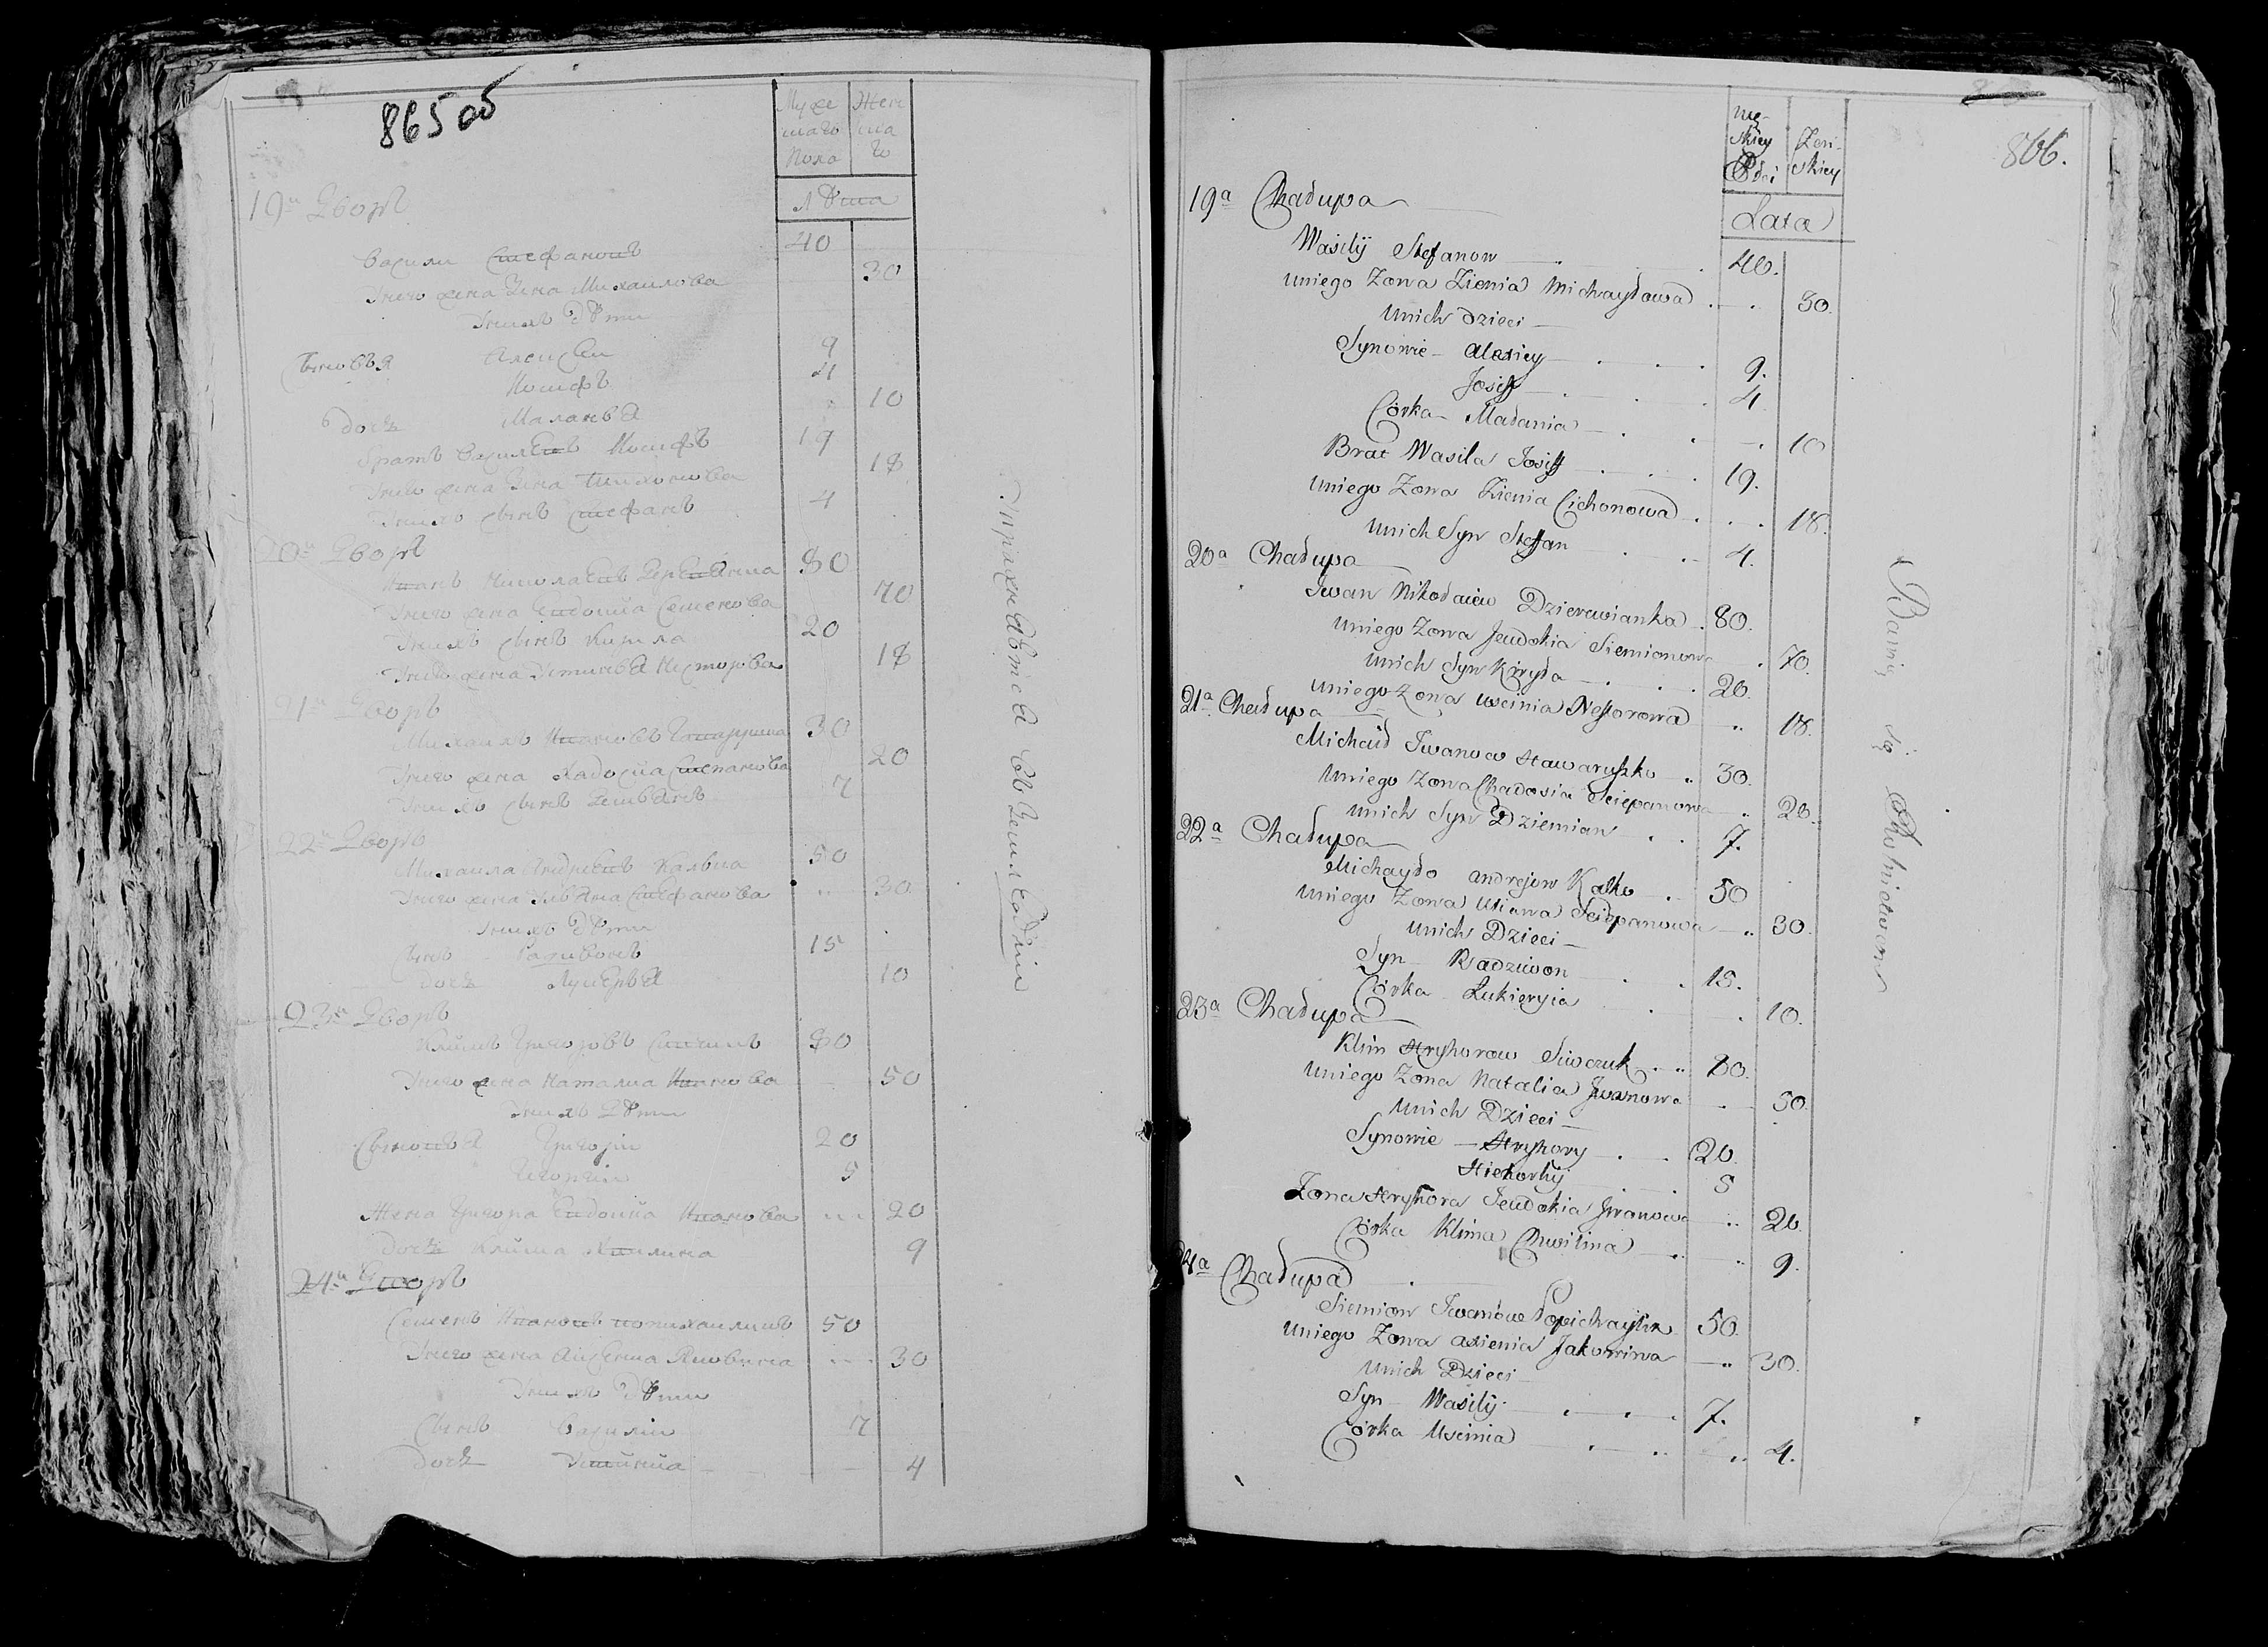 865 об
Муже
скаго
пола
Женс
ка
го
лѣта
19й Дворъ
Василий Стефановъ 40
У него жена Зеня Михайлова 30
У нихъ дѣти
Сыновья Алексей 9
Иосифъ 4
дочь Маланья 10
Братъ Васильевъ Иосифъ 19
У него жена Зеня Тихонова 18
У нихъ сынъ Стефанъ 4
20й Дворъ
Иванъ Николаевъ 80
У него жена Евдокия Семенова 70
У нихъ сынъ Кирила 20
У него жена Устинья Несторова 18
21й Дворъ
Михаилъ Ивановъ 30
У него жена Хадосиа Степанова 20
У нихъ сынъ Демьянъ 7
22й Дворъ
Михаила Андреевъ Калько 50
У него жена Ульяна Стефанова 30
У нихъ дѣти
Сынъ Радивонъ 15
дочь Лукерья 10
23й Дворъ
Климъ Григоровъ 80
У него жена Наталиа Иванова 50
У нихъ дѣти
Сыновья Григорій 20
Георгій 5
Жена Григора Евдокиа Иванова 20
Дочь Клима Хвилина 9
24й Дворъ
Семенъ Ивановъ 50
У него жена Аксения Яковина 30
У нихъ дѣти
Сынъ Василій 7
Дочь Устиниа 4
Упражняются въ Земледѣліи
866.
Mę-
skiey
Płci
Żeń-
skiey
Lata
19a Chałupa
Wasilÿ Stefanow 40.
Uniego Żona Zienia Michayłowa 30.
Unich Dzieci
Synowie Alexiey 9.
Josiff 4.
Córka Małania 10
Brat Wasila Josiff 19.
Uniego Żona Zienia Cichonowa 18.
Unich Syn Steffan 4.
20a Chałupa
Iwan Nikołaiew Dzierewianka 80.
Uniego Żona Jeudokia Siemionowa 70.
Unich Syn Kiryła 20.
Uniego Żona Uścinia Nestorowa 18.
21a Chałupa
Michaił Iwanow Hawaruszko 30.
Uniego Żona Chadosia Sciepanowa 20.
Unich Syn Dziemian 7.
22a Chałupa
Michayło Andrejew Kalko 50
Uniego Żona Uliana Sciepanowa 30.
Unich Dzieci
Syn Radziwon 15.
Córka Łukieryia 10.
23a Chałupa
Klim Hryhorow Siwczuk 80.
Uniego Żona Natalia Jwanowa 50.
Unich Dzieci
Synowie Hryhory 20.
Hiehorhÿ 5
Żona Hryhora Jeudokia Jwanowa 20.
Córka Klima Chwilina 9.
24a Chałupa
Siemion Iwanow 50.
Uniego Żona Axienia Jakowiwa 30.
Unich Dzieci
Syn Wasilÿ 7.
Córka Uscinia 4.
Bawią się Rolnictwem